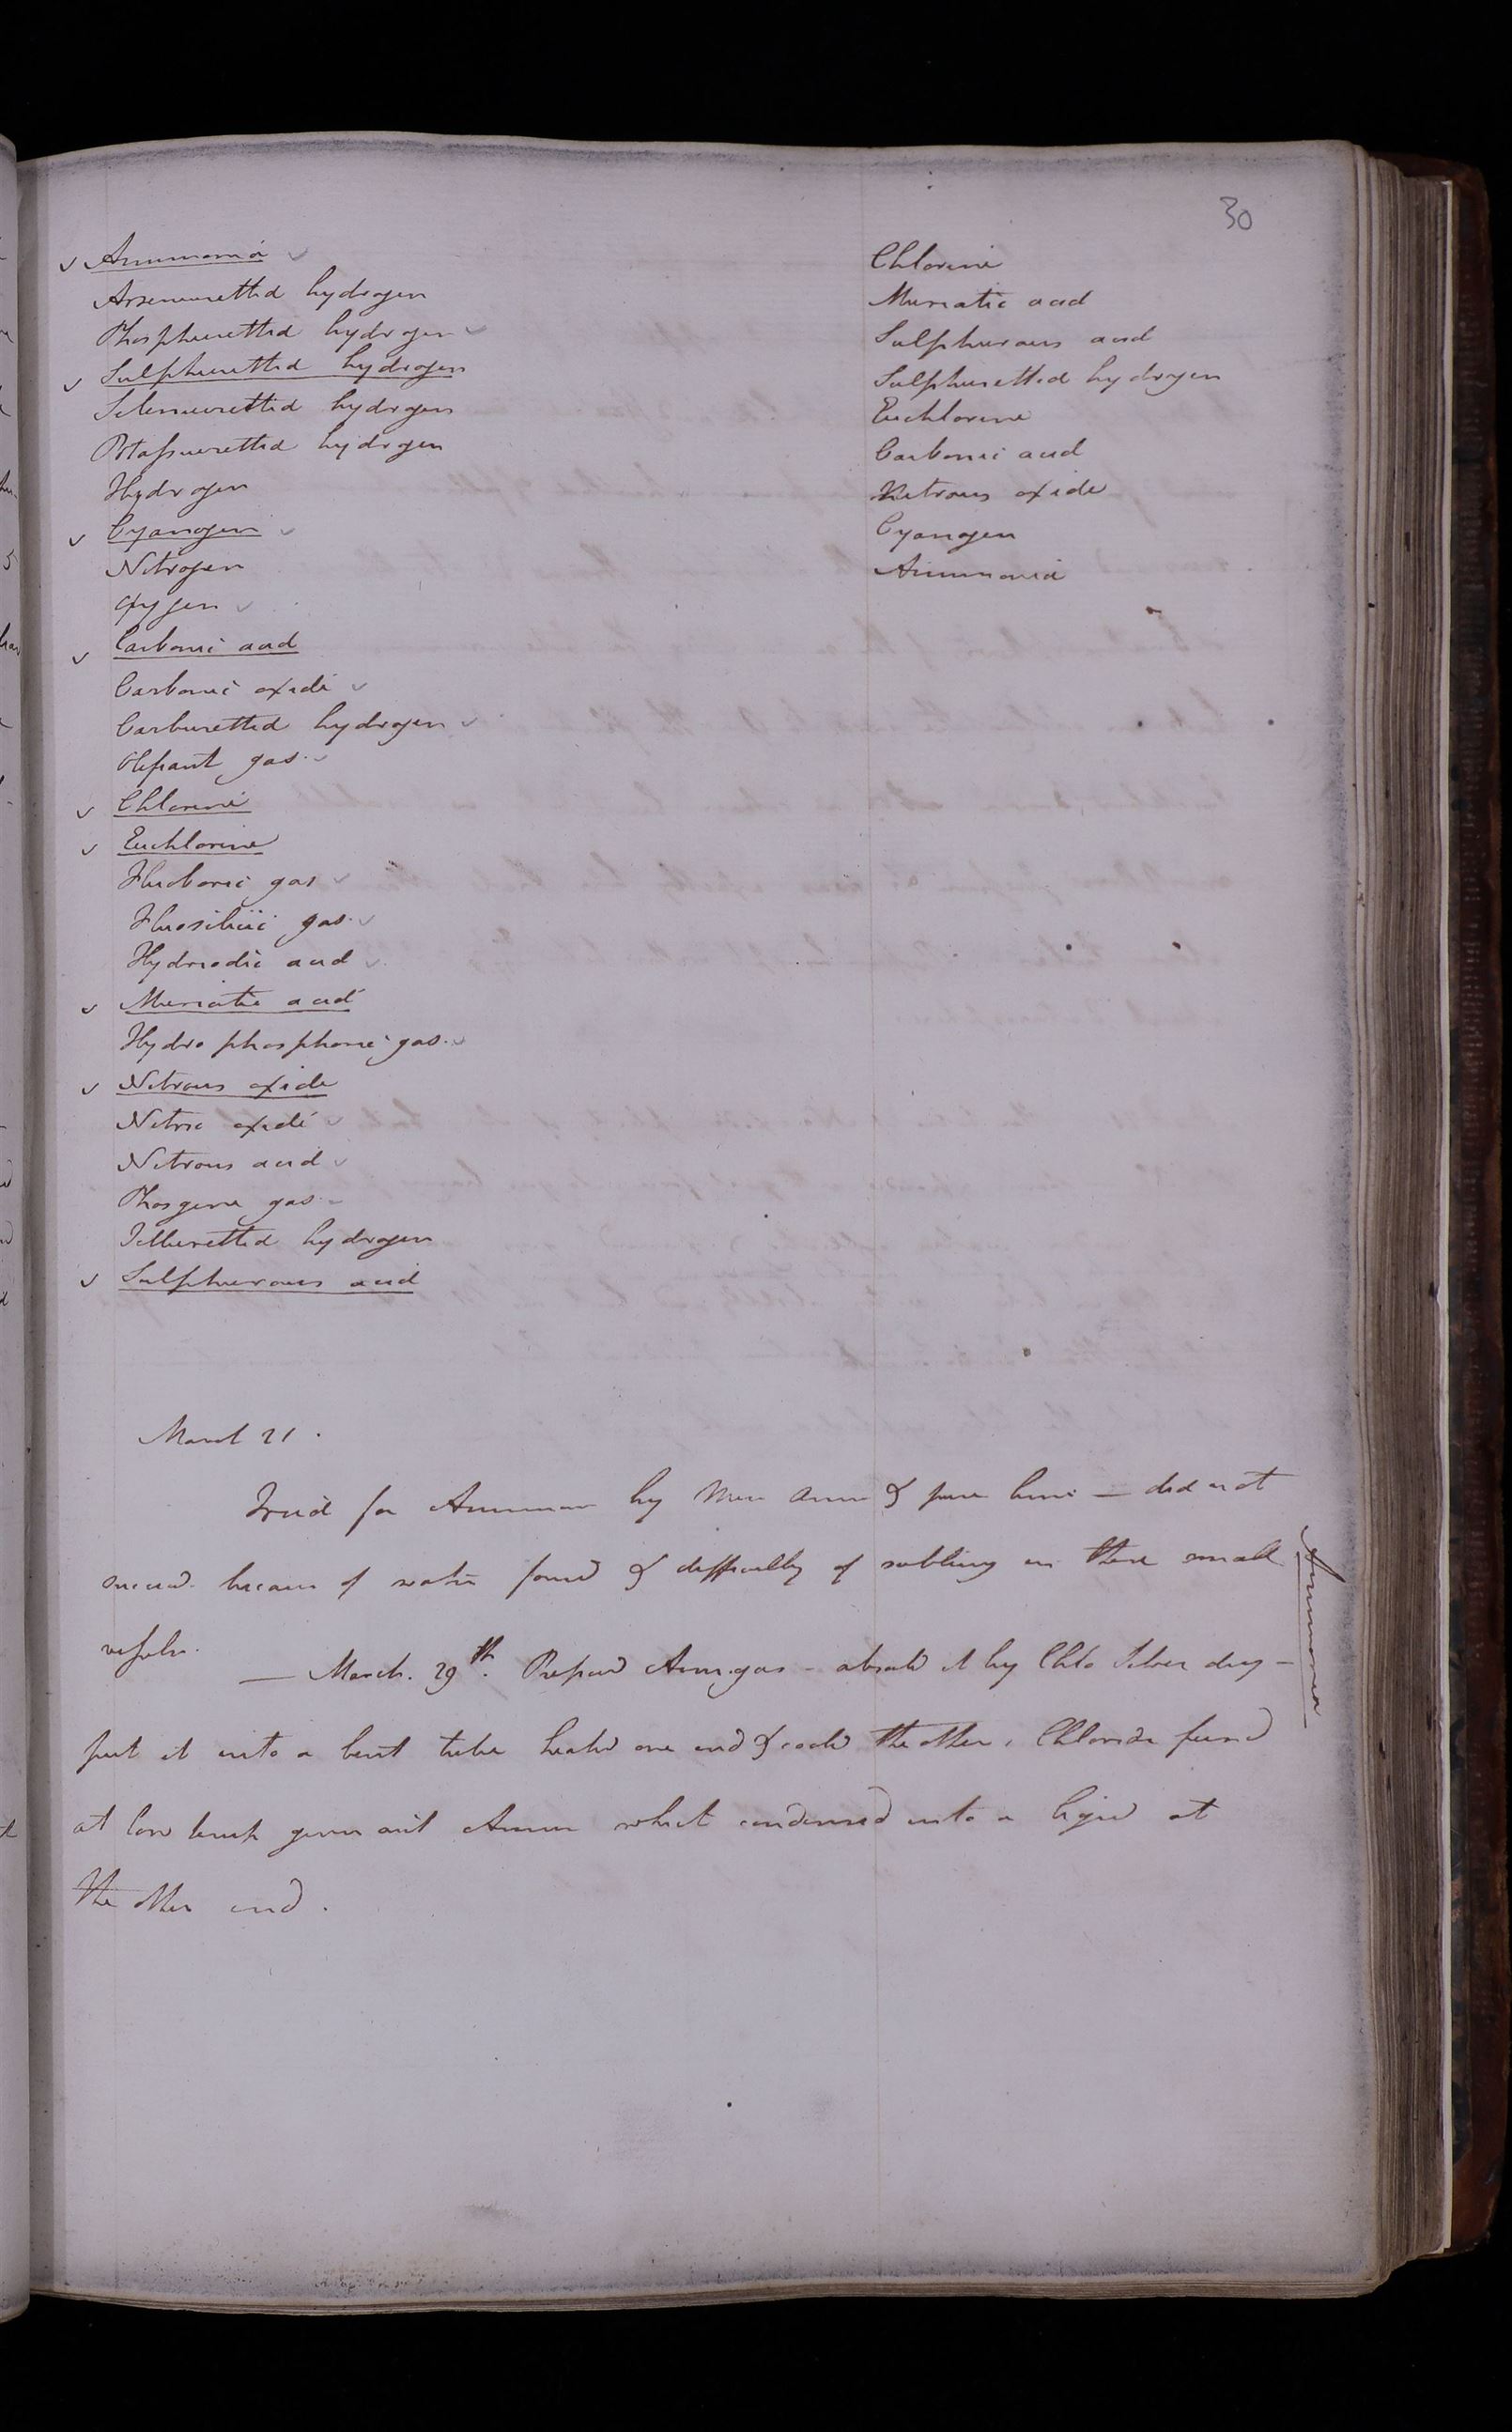 30
Ammonia
Arseniuretted hydrogen
Phosphuretted hydrogen
Sulphuretted hydrogen
Seleniuretted hydrogen
Potassuretted hydrogen
Hydrogen
Cyanogen
Nitrogen
Oxygen
Carbonic acid
Carbonic oxide
Carburetted hydrogen
Olefiant gas
Chlorine
Euchlorine
Fluoboric gas
Fluosilicic gas
Hydriodic acid
Muriatic acid
Hydro phosphoric gas
Nitrous oxide
Nitric oxide
Nitrous acid
Phosgene gas
Telluretted hydrogen
Sulphurous acid
Chlorine
Muriatic acid
Sulphurous acid
Sulphuretted hydrogen
Euchlorine
Carbonic acid
Nitrous oxide
Cyanogen
Ammonia
March 21.
Tried for Ammon by Mur Amm & pure lime — did not
succeed because of water formd & difficulty of subliming in these small
vessels.
— March. 29th. Prepard Amm. gas - absorbd it by Chlo Silver dry -
put it into a bent tube heatd one end & coold the other. Chloride fused
at low temp gave out Ammn which condensed into a liquid at
the other end.
Ammonia